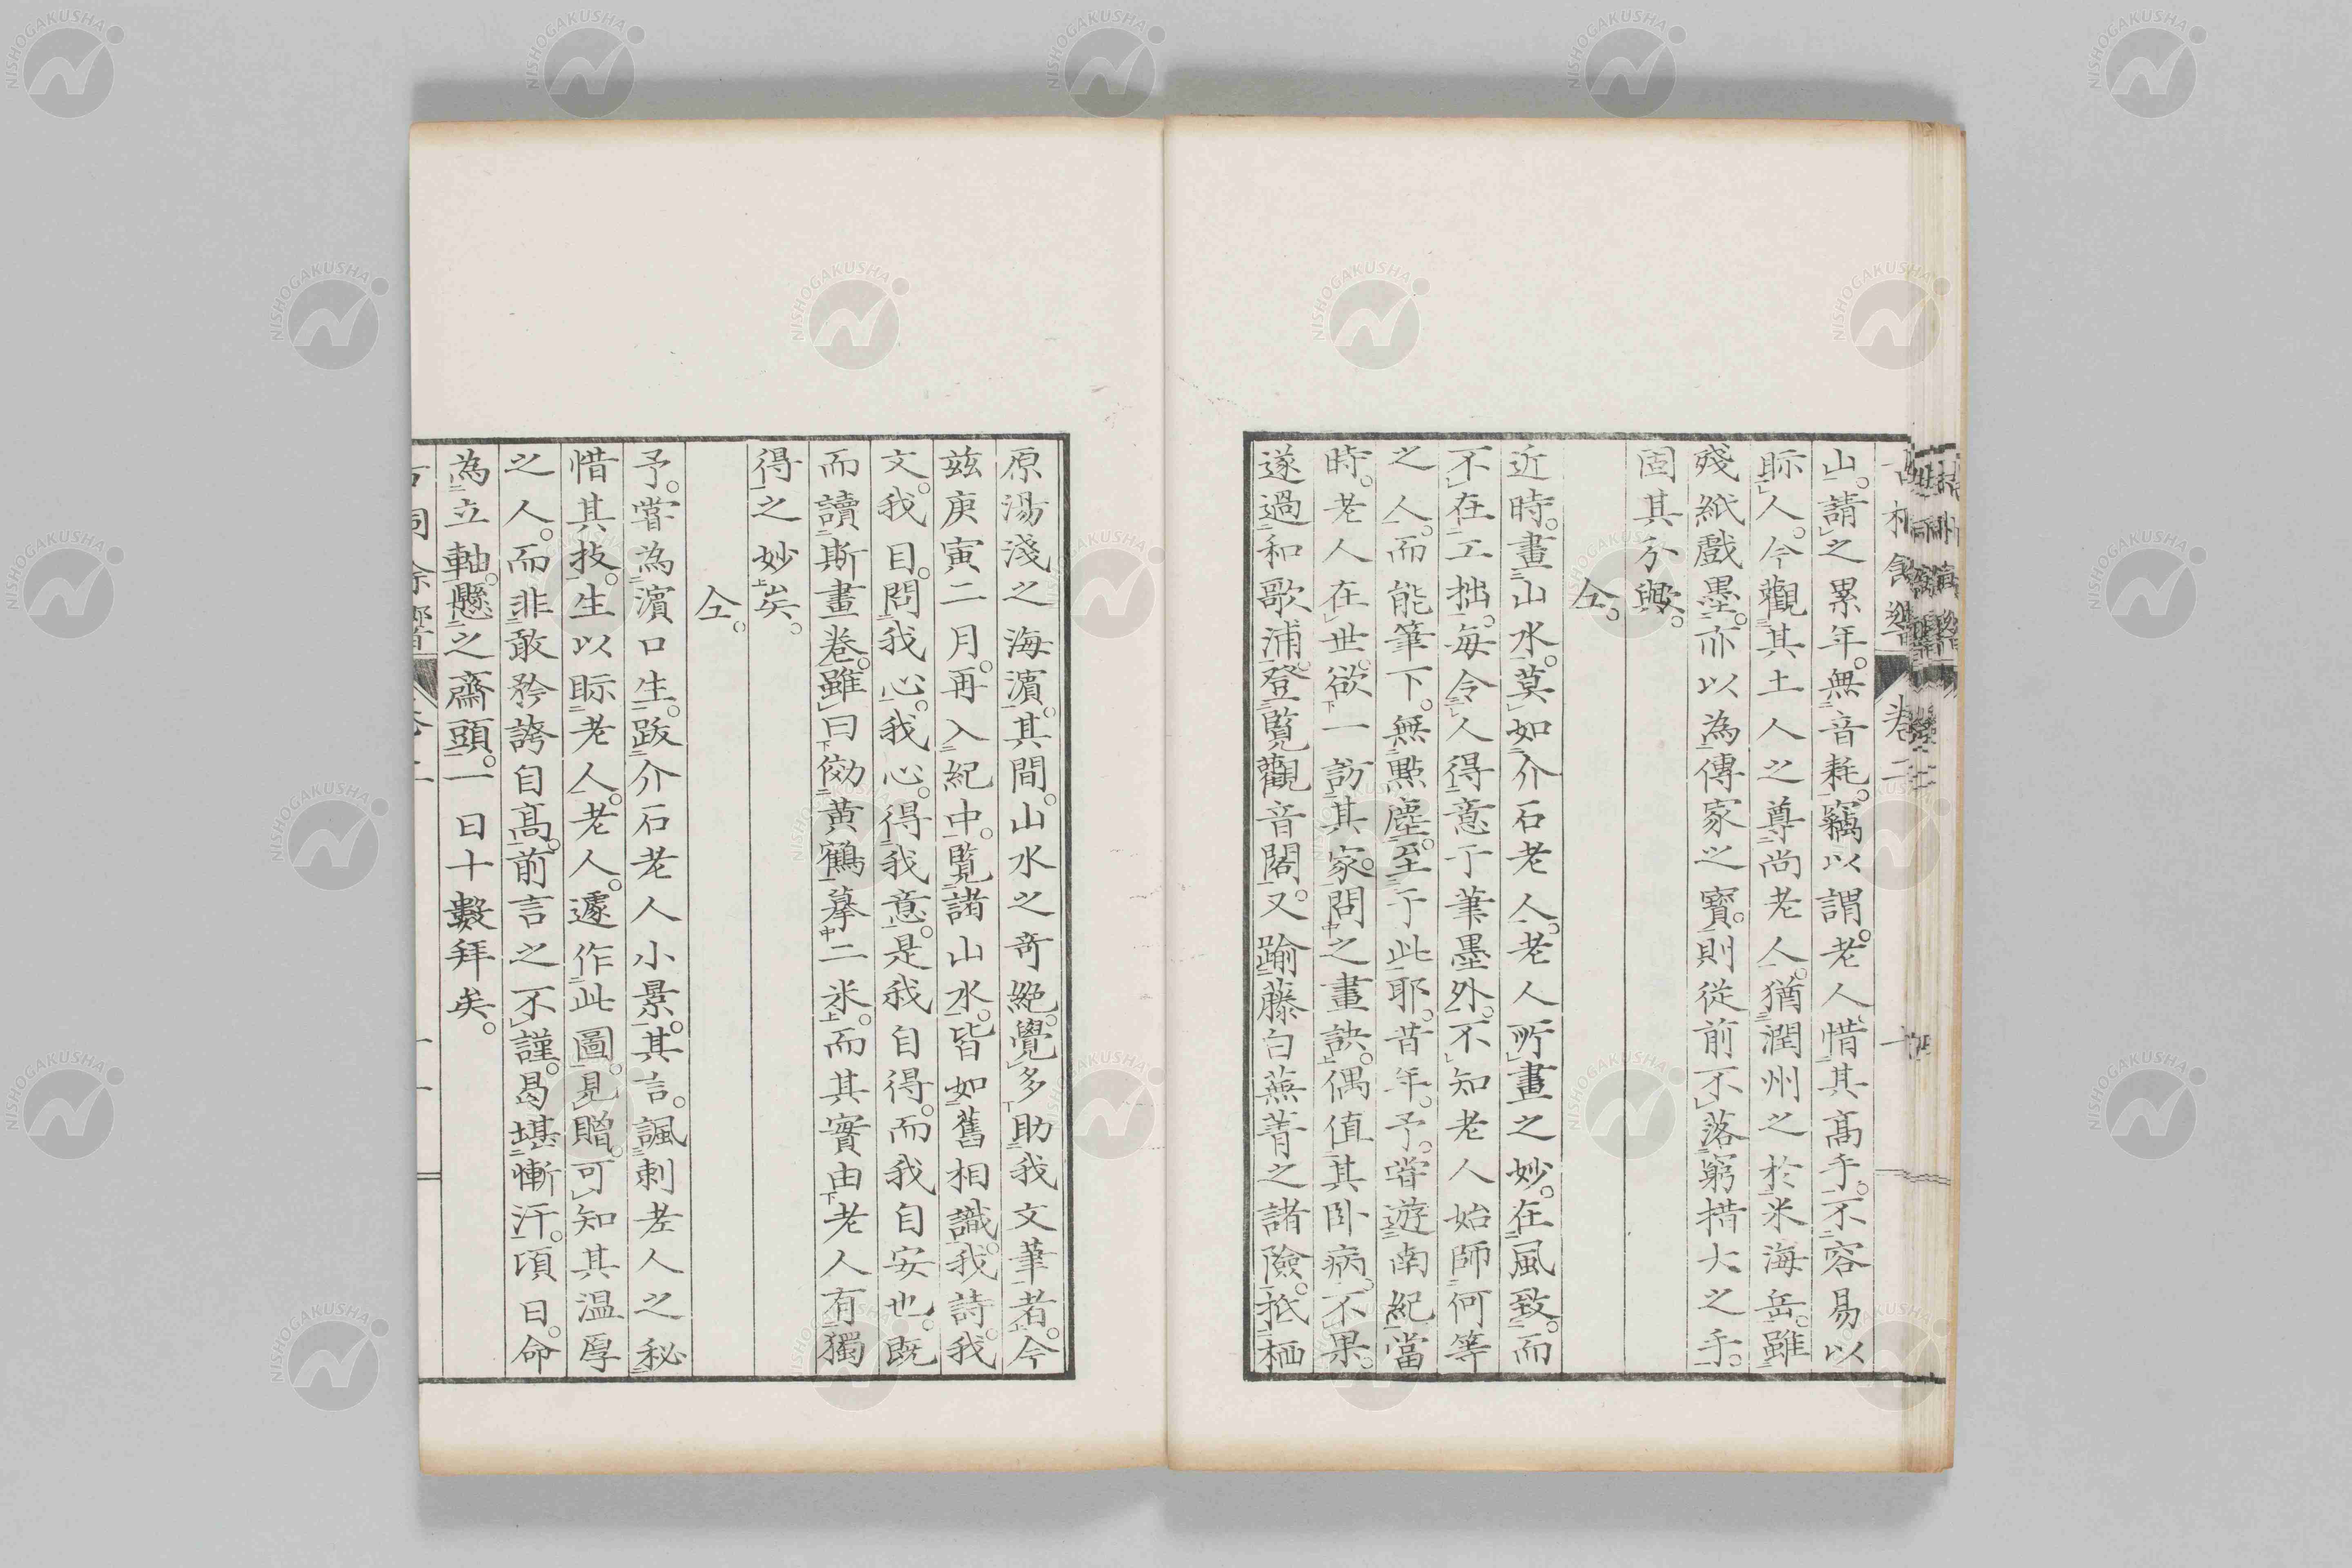 山。請之累年。無音耗。竊以謂。老人惜其高手。不容易以
眎人。今觀其土人之尊尚老人。猶潤州之於米海岳。雖
殘紙戲墨。亦以為傳家之寶。則從前不落窮措大之手。
固其分歟。
仝。
近時。畫山水。莫如介石老人。老人所畫之妙。在風致。而
不在工拙。每令人得意于筆墨外。不知老人始師何等
之人。而能筆下。無點塵。至于此耶。昔年。予。嘗遊南紀。當
時。老人在世。欲一訪其家。問之畫訣。偶值其臥病。不果。
遂過和歌浦。登覽觀音閣。又踰藤白蕪菁之諸險。抵栖
原湯淺之海濱。其間。山水之奇絕。覺多助我文筆者。今
茲庚寅二月。再入紀中。覽諸山水。皆如舊相識。我詩。我
文。我目。問我心。我心。得我意。是我自得。而我自安也。既
而讀斯畫卷。雖曰倣黃鶴摹二米。而其實由老人有獨
得之妙矣。
仝。
予。嘗為濱口生。跋介石老人小景。其言。諷刺老人之秘
惜其技。生以眎老人。老人。遽作此圖。見贈。可知其温厚
之人。而非敢矜誇自高。前言之不謹。曷堪慚汗。頃日。命
為立軸。懸之齋頭。一日十數拜矣。
卷二